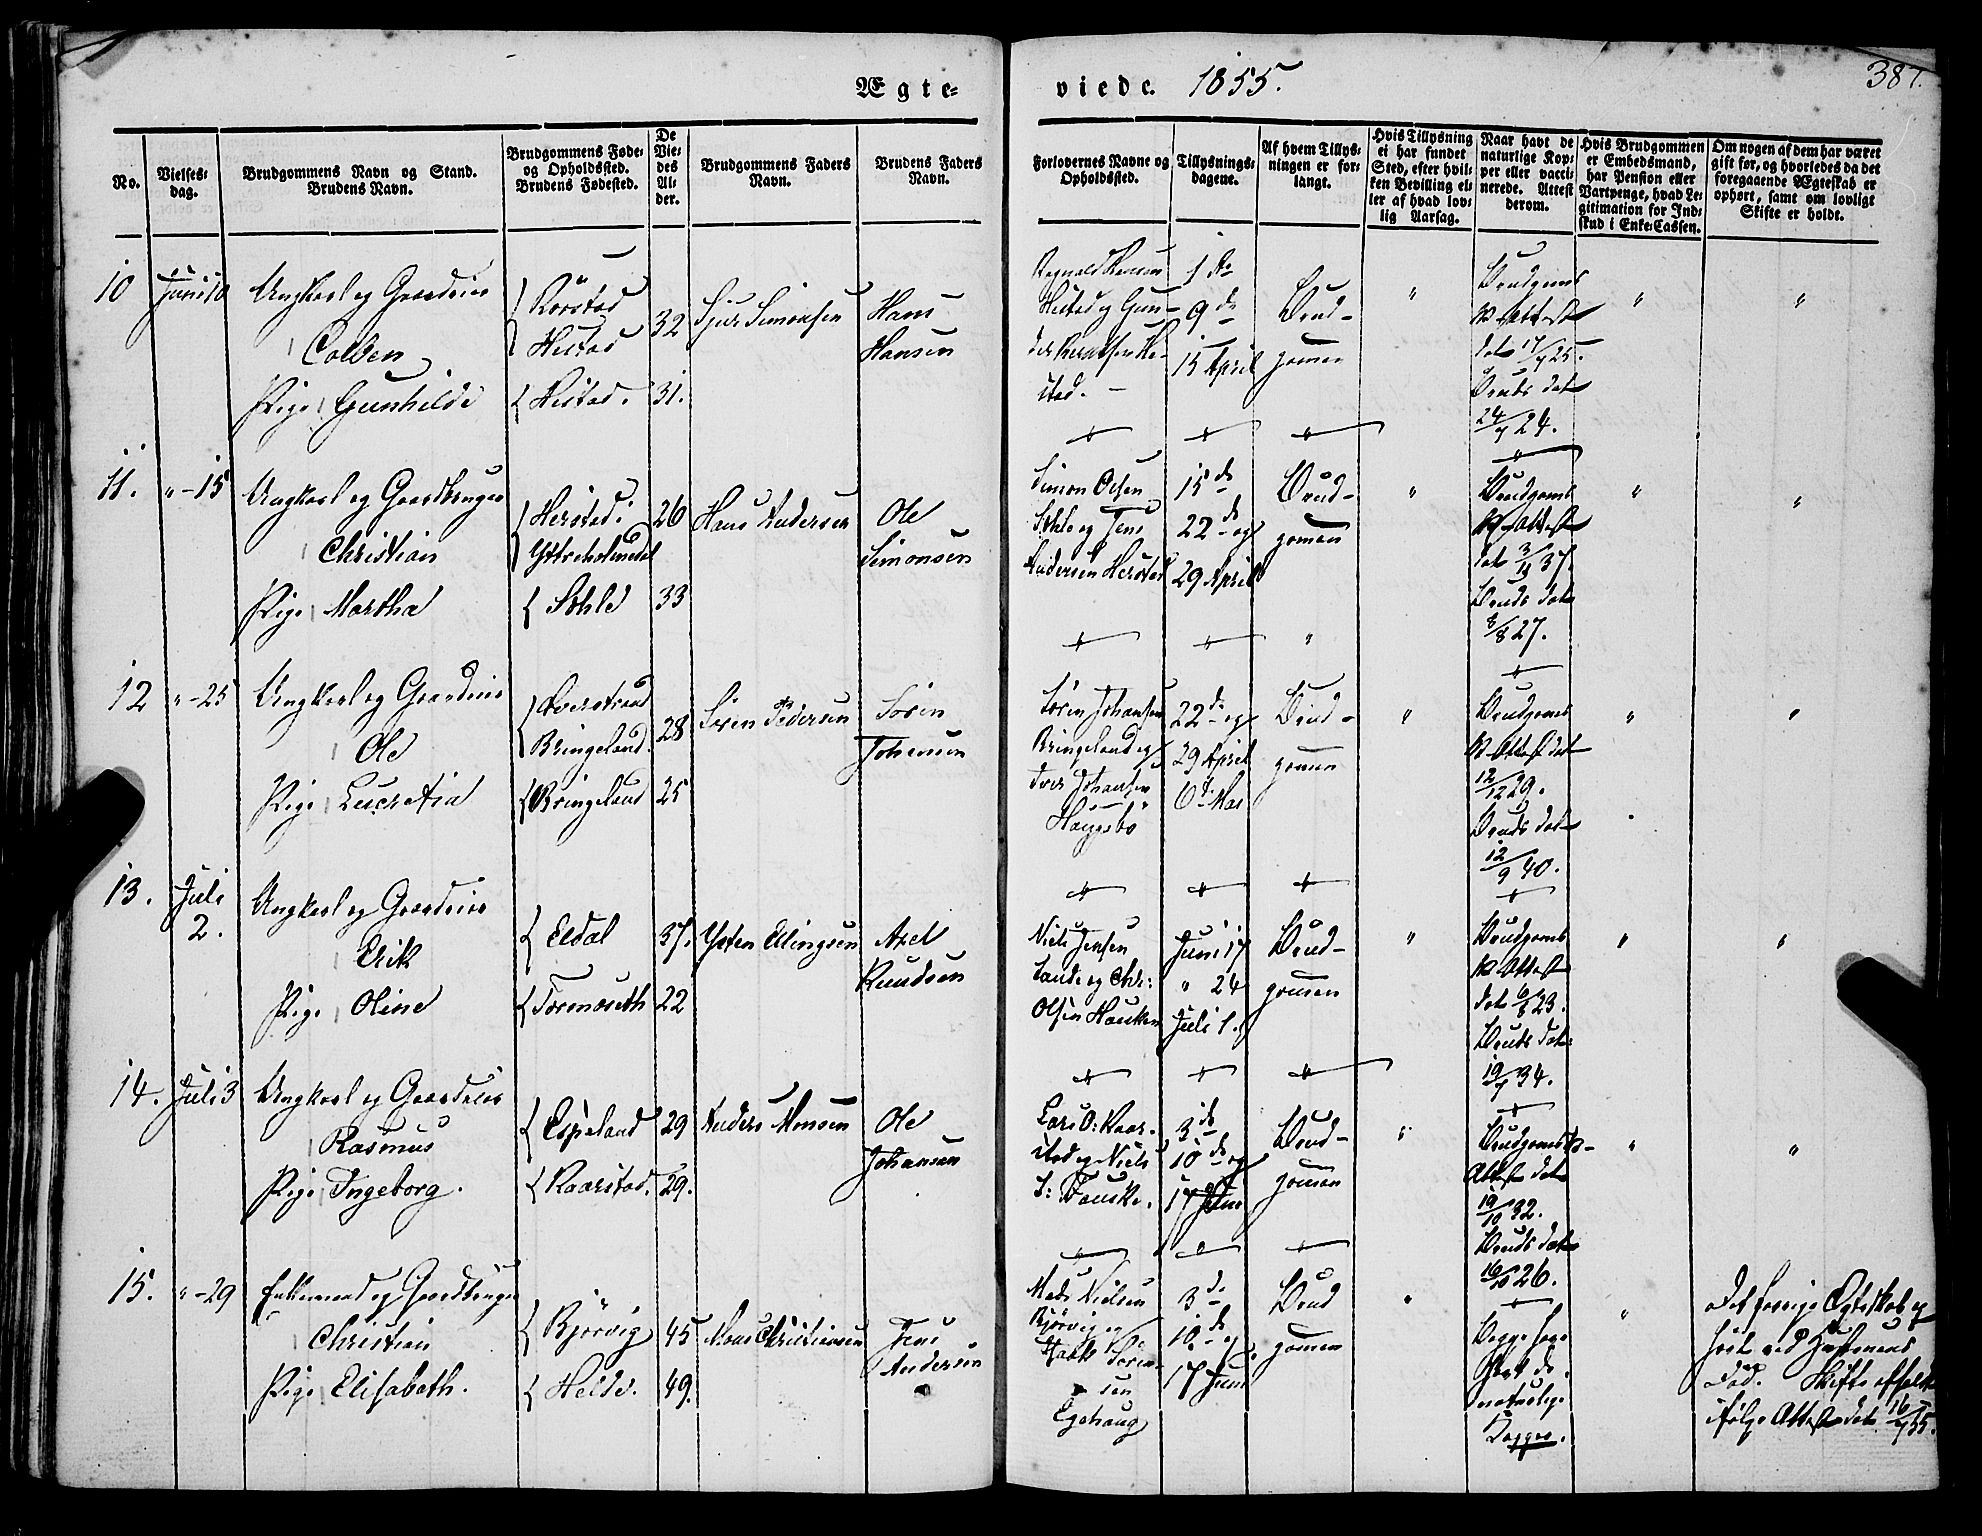 Ægte-
viede. 1855.
387.
No.
Vielses-
dag.
Brudgommens Navn og Stand.
Brudens Navn.
Brudgommens Føde-
og Opholdssted.
Brudens Fødested.
De
Vie-
des
Al-
der.
Brudgommens Faders
Navn.
Brudens Faders
Navn.
Forlovernes Navne og
Opholdssted.
Tillysnings-
dagene.
Af hvem Tillys-
ningen er for-
langt.
Hvis Tillysning
ei har fundet
Sted, efter hvil-
ken Bevilling el-
ler af hvad lov-
lig Aarsag.
Naar havt de
naturlige Kop-
per eller vacci-
nerede. Attest
derom.
Hvis Brudgommen
er Embedsmand,
har Pension eller
Vartpenge, hvad Le-
gitimation for Ind-
skud i Enke-Cassen.
Om nogen af dem har været
gift før, og hvorledes da det
foregaaende Ægteskab er
ophørt, samt om lovligt
Skifte er holdt.
10 Juni 10 Ungkarl og Gaardeier
Colben
Pige Gunhilde
Rørstad
Hestad
Hestad.
32
31.
Sjur Simonsen
Hans
Hansen
1ste
9de
15 April
Brud-
gommen
" " "
Brudgoms
V. Attest
dat 17/7 25.
Bruds dat
24/7 24.
11. " - 15 Ungkarl og Gaardbruger
Christian
Pige Martha
Herstad.
Yttreholmedal
Sohle
26
33
Hans Andersen
Ole
Simonsen
Simon Olsen
Sohle og Jens
Andersen Herstad
15de
22de og
29 April
Brud-
gommen
" " "
Brudgoms
V. Attest
dat 3/11 37.
Bruds dat
8/8 27.
12 " - 25 Ungkarl og Gaardeier
Ole
Pige Lucretia
Averstrand
Bringeland.
Bringeland
28
25
Sören Pedersen
Sören
Johansen
Sören Johansen
Bringeland og
Iver Johansen
Haugsbø
22de og
29 April
6te Mai
Brud-
gommen
" " "
Brudgoms
V. Attest dat
12/12 29.
Bruds dat
12/9 40.
13. Juli
2.
Ungkarl og Gaardeier
Erik
Pige Oline
Eldal
Tormoseth
37.
22
Ysten Ellingsen
Axel
Knudsen
Niels Jensen
Sande og Chr:
Olsen Hauken
Juni 17
" 24
Juli 1.
Brud-
gommen
" " "
Brudgoms
V. Attest
dat 6/8 23.
Bruds dat
19/7 34.
14. Juli 3 Ungkarl og Gaardeier
Rasmus
Pige Ingeborg.
Espeland
Kaarstad.
29
29.
Anders Monsen
Ole
Johansen
Lars O: Kaar-
stad og Niels
J: Fauske.
3de
10de og
17 Juni
Brud-
gommen
" " "
Brudgoms V.
Attest dat
19/10 32.
Bruds dat
16/10 26.
15. " - 29 Enkemand og Gaardbruger
Christian
Pige Elisabeth.
Bjørvig
Helde.
45
49.
Mons Christiansen
Jens
Andersen
Mads Nielsen
Bjørvig og
Sören-
sen
Egehaug
3de
10de og
17 Juni
Brud
gommen
" "
Begge have
havt de
naturlige
Kopper.
Det forrige Egteskab op-
hørt ved Hustruens
Død. Skifte afholdt
ifølge Attest dat 16/7 55.